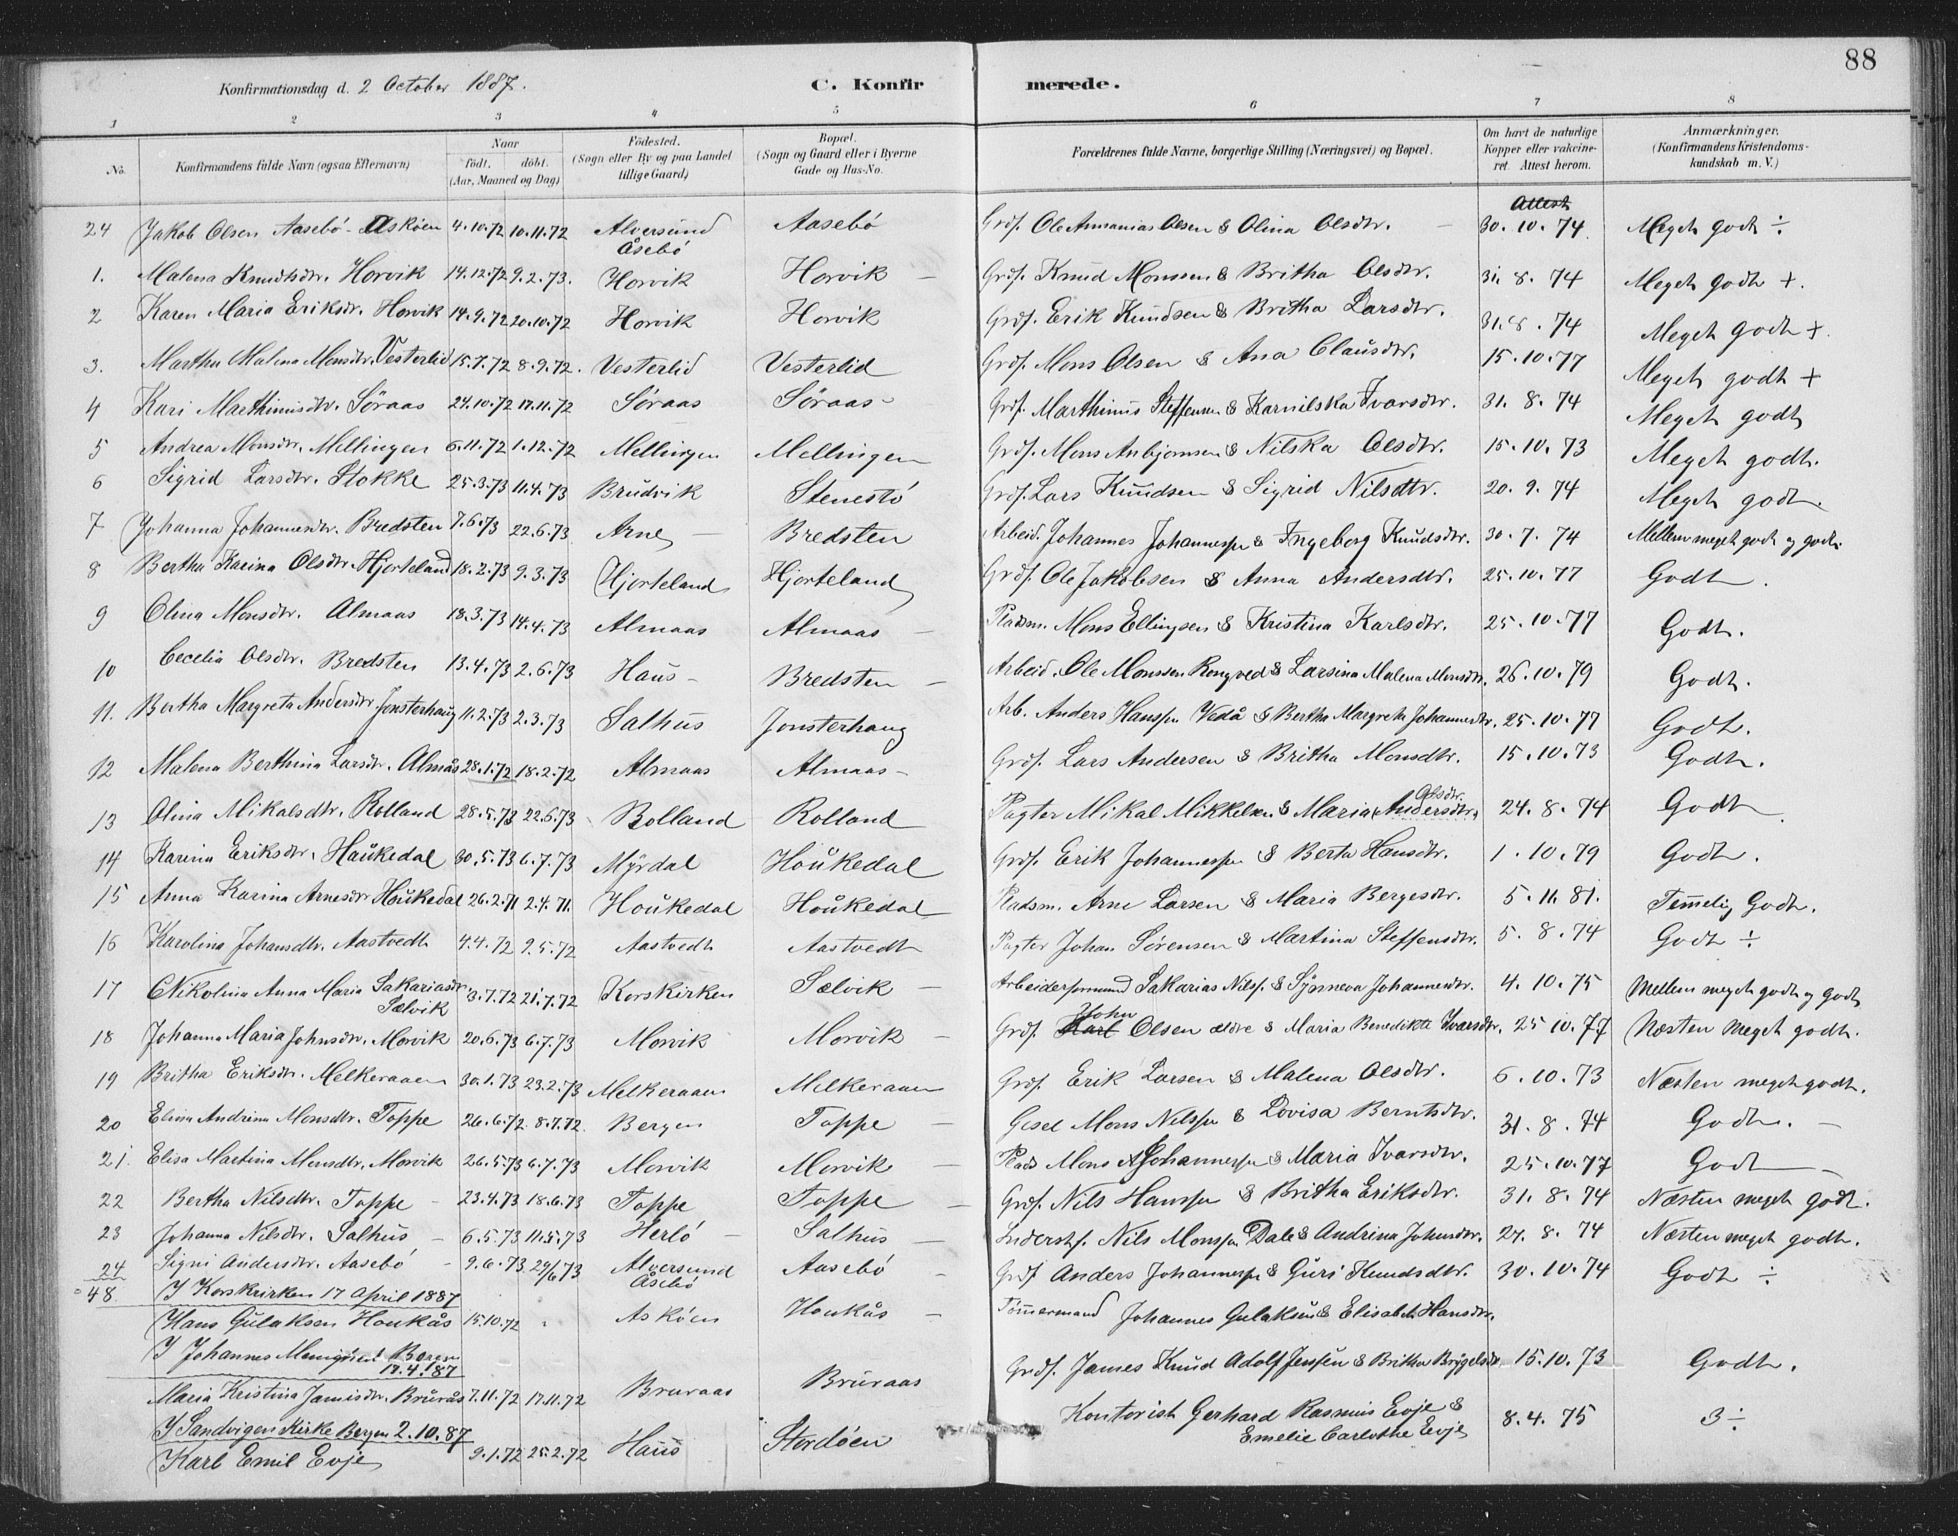 88
Konfirmationsdag d. 2 October 1887.
C. Konfirmerede.
1 2 3 4 5 6 7 8
No. Konfirmandens fulde Navn (ogsaa Efternavn) Naar født. døbt. (Aar, Maaned og Dag) Födested. (Sogn eller By og paa Landet tillige Gaard) Bopæl. (Sogn og Gaard eller i Byerne Gade og Hus-No. Forældrenes fulde Navne, borgerlige Stilling (Næringsvei) og Bopæl. Om havt de naturlige Kopper eller vakcineret. Attest herom. Anmærkninger. (Konfirmandens Kristendomskundskab m. V.)
Attest
24 Jakob Olsen Aasebö - Asköen 4.10.72 10.11.72 Alversund Åsebö Aasebö Grdf. Ole Ananias Olsen & Olina Olsdtr. 30.10.74 Meget godt ÷
1. Malena Knudsdtr. Horvik 14.12.72 9.2.73. Horvik Horvik Grdf. Knud Monssen & Britha Olsdtr. 31.8.74 Meget godt +.
2 Karen Maria Eriksdtr. Horvik 14.9.72 20.10.72 Horvik Horvik Grdf. Erik Knudsen & Britha Larsdtr. 31.8.74 Meget godt +.
3. Martha Malena Monsdtr. Vesterlid 15.7.72 8.9.72. Vesterlid Vesterlid Grdf. Mons Olsen & Ana Clausdtr. 15.10.77 Meget godt +
4 Kari Marthinusdtr. Söraas 24.10.72 17.11.72 Söraas Söraas Grdf. Marthinus Steffensen & Karnilska Ivarsdtr. 31.8.74 Meget godt
5 Andrea Monsdtr. Mellingen 6.11.72 1.12.72 Mellingen Mellingen Grdf. Mons Anbjornsen & Nilska Olsdtr. 15.10.73 Meget godt.
6 Sigrid Larsdtr. Stokke 25.3.73 11.4.73 Brudvik Stenestö Grdf. Lars Knudsen & Sigrid Nilsdtr. 20.9.74 Meget godt.
7 Johanna Johannesdtr. Bredsten 7.6.73 22.6.73 Arne Bredsten Arbeid. Johannes Johannessen & Ingeborg Knudsdtr. 30.7.74 Mellem meget godt og godt.
8 Bertha Karina Olsdtr. Hjorteland 18.2.73 9.3.73 Hjorteland Hjorteland Grdf. Ole Jakobsen & Anna Andersdtr. 25.10.77 Godt.
9 Olina Monsdtr. Almaas 18.3.73 14.4.73 Almaas Almaas Pladsm. Mons Ellingsen & Kristina Karlsdtr. 25.10.77 Godt.
10 Cecelia Olsdtr. Bredsten 13.4.73 2.6.73 Haus Bredsten Arbeid. Ole Monssen Rongved & Larsina Malena Monsdtr. 26.10.79 Godt.
11. Bertha Margreta Andersdtr Jonsterhaug 11.2.73 2.3.73 Salhus Jonsterhaug Arb. Anders Hanssen Vedå & Bertha Margrete Johannesdtr. 25.10.77 Godt.
12 Malena Berthina Larsdtr. Almås 28.1.72 18.2.72 Almaas Almaas Grdf. Lars Andersen & Britha Monsdtr. 15.10.73 Godt.
13 Olina Mikalsdtr. Rolland 28.5.73 22.6.73 Rolland Rolland Pagter Mikal Mikkelsen & Maria Andersdtr. Olsdtr. 24.8.74 Godt
14 Karina Eriksdtr. Haukedal 30.5.73 6.7.73 Myrdal Houkedal Grdf. Erik Johannessen & Berta Hansdtr. 1.10.79 Godt.
15 Anna Karina Arnesdtr Houkedal 26.2.71 2.4.71. Houkedal Houkedal Pladsm. Arne Larsen & Maria Bergesdtr. 5.11.81. Temmelig Godt.
16 Karolina Johansdtr. Aastvedt 4.4.72 9.5.72 Aastvedt Aastvedt Pagter Johan Sørensen & Martina Steffensdtr. 5.8.74 Godt ÷
17 Nikolina Anna Maria Sakariasdtr Sælvik 3.7.72 21.7.72 Korskirken Sælvik Arbeidersformand Sakarias Nilss. & Synneva Johannesdtr. 4.10.75 Mellem meget godt og godt
18 Johanna Maria Johnsdtr. Morvik 20.6.73 6.7.73 Morvik Morvik Grdf. Karl John Olsen ældre & Maria Benedikte Ivarsdtr. 25.10.77 Næsten meget godt.
19 Britha Eriksdtr. Melkeraaen 30.1.73 23.2.73 Melkeraaen Melkeraaen Grdf. Erik Larsen & Malena Olsdtr. 6.10.73 Næsten meget godt.
20 Elina Andrina Monsdtr. Toppe 26.6.72 8.7.72. Bergen Toppe Gesel Mons Nilssen & Lovisa Berntsdtr. 31.8.74 Godt.
21. Elisa Martina Monsdtr. Morvik 26.5.73 6.7.73 Morvik Morvik Plads Mons Johannessen & Maria Ivarsdtr. 25.10.77 Godt
22 Bertha Nilsdtr. Toppe 23.4.73 18.6.73 Toppe Toppe Grdf. Nils Hanssen & Britha Eriksdtr. 31.8.74 Næsten meget godt.
23 Johanna Nilsdtr. Salhus 6.5.73 11.5.73 Herlö Salhus Inderstf. Nils Monssen Dale & Andrina Johnsdtr. 24.8.74 Næsten meget godt.
24 Signi Andersdtr. Aasebö 9.6.73 29/6.73 Alversund Åsebö Aasebö Grdf Anders Johannessen & Guri Knudsdtr. 30.10.74 Godt ÷
48. I Korskirken 17 April 1887
Hans Gulaksen Houkås 15.10.72 Asköen Houkås Tömmermand Johannes Gulaksen & Elisabeth Hansdtr.
I Johannes Menighed Bergen 17.4.87
Maria Kristina Jamisdtr. Brurås 7.11.72 17.11.72 Bruraas Bruraas Grdf. James Knud Adolf Jensen & Britha Brygelsdtr 15.10.73 Godt.
I Sandvigen Kirke Bergen 2.10.87
Karl Emil Evje 9.1.72 25.2.72 Haus Stordöen Kontorist Gerhard Rasmus Evje & Emelie Carlothe Evje 8.4.75 3 ÷